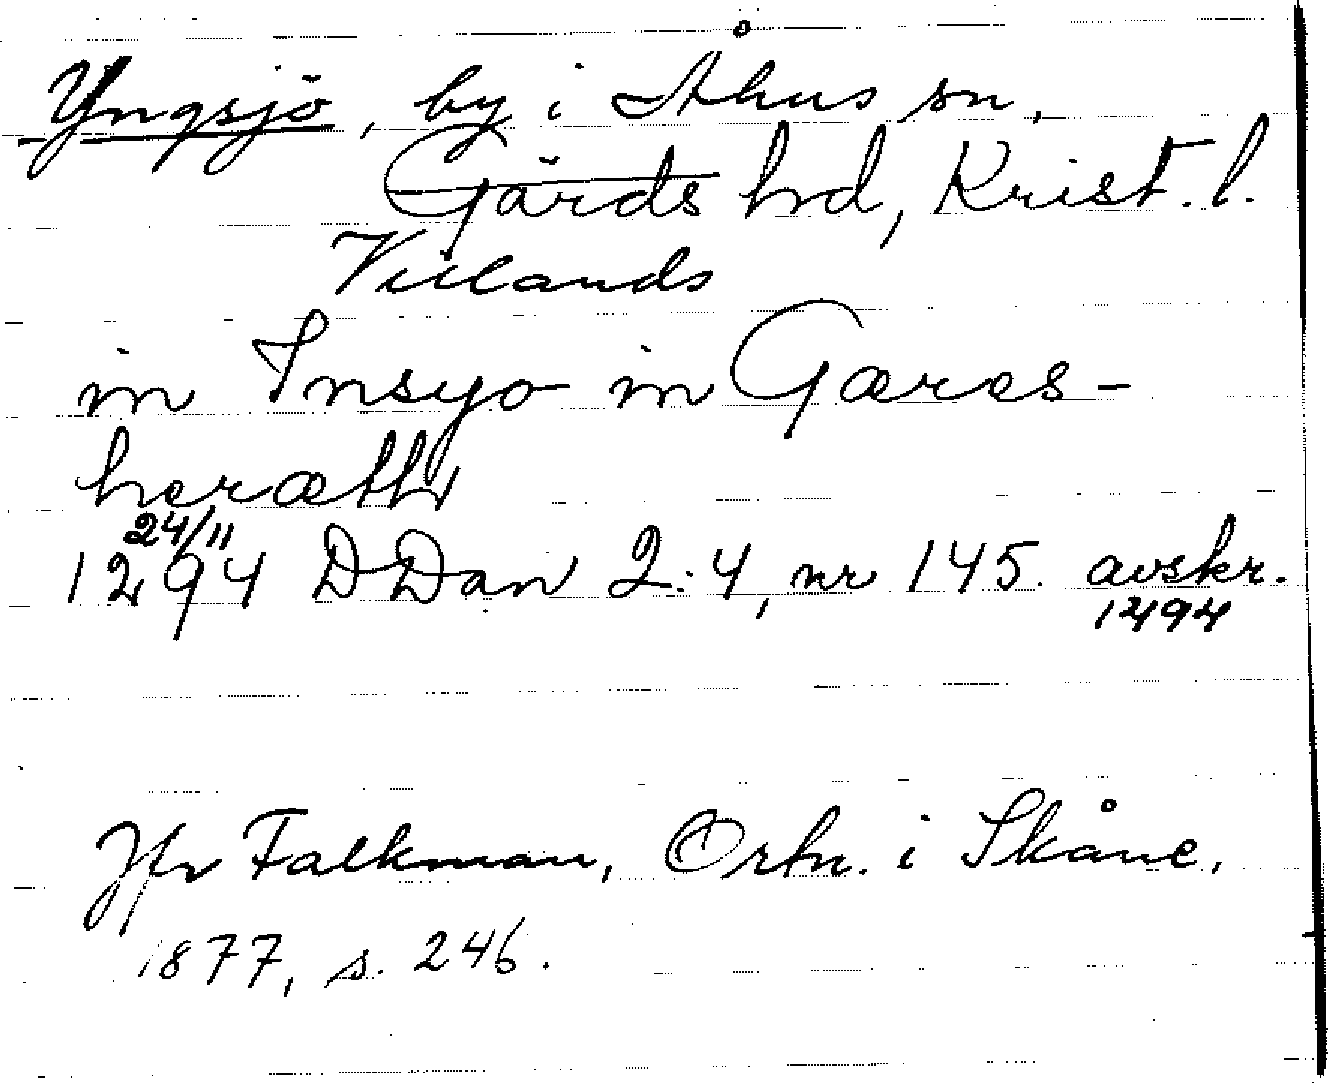 Yngsjö, by i Åhus sn,
Gärds hd, Krist. l.
Villands
in Insyo in Gæres-
heræth
24/11
1294 DDan 2:4, nr 145. avskr.
1494
Jfr Falkman, Ortn. i Skåne,
1877, s. 246.